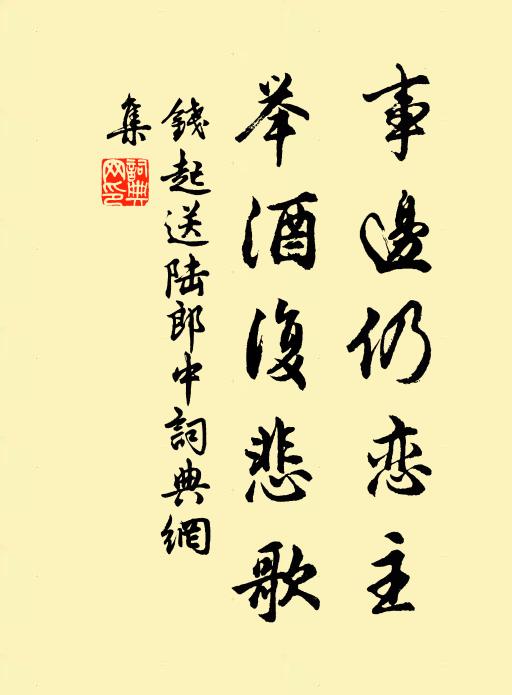 事邊仍恋主
举酒復悲歌
錢起送陆郎中詞典網
集
詞典
网印